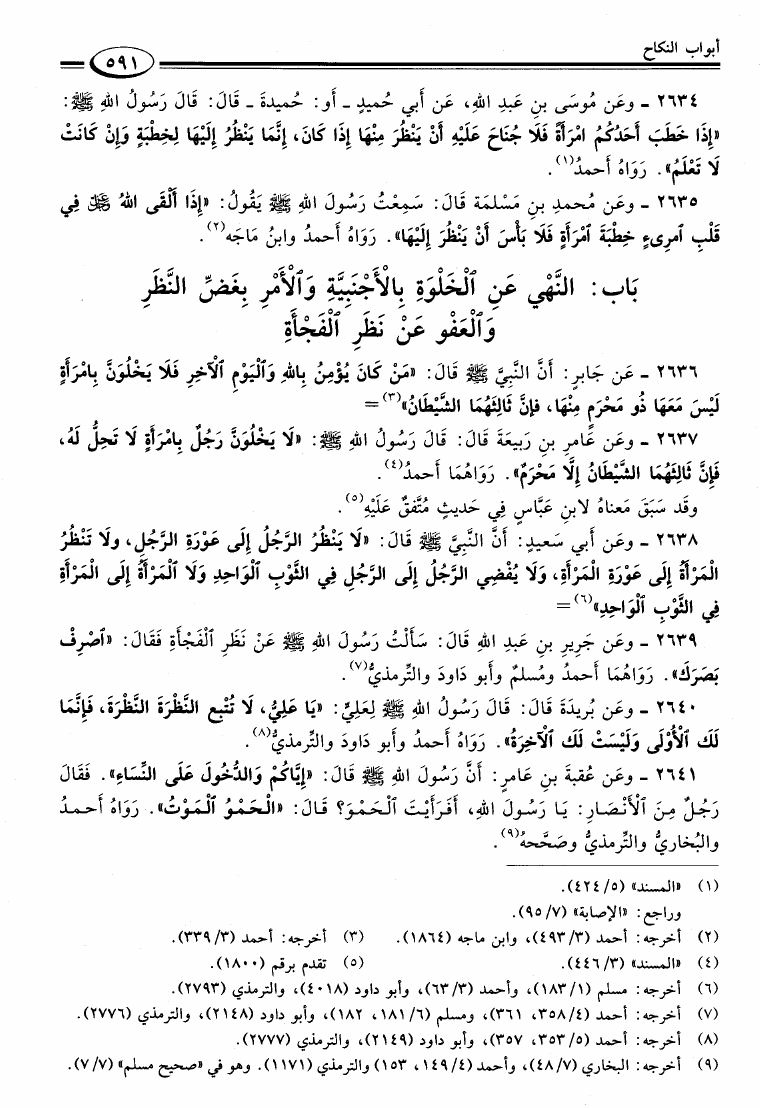 أبواب النكاح
٥٩١
٢٦٣٤ ـ وعَن مُوسَى بنِ عَبدِ اللهِ، عَن أبي حُميدٍ ـ أو: حُميدةَ ـ قالَ: قَالَ رَسُولُ اللهِ ﷺ:
«إِذَا خَطَبَ أَحَدُكُمُ امْرَأَةً فَلَا جُنَاحَ عَلَيْهِ أَنْ يَنْظُرَ مِنْهَا إِذَا كَانَ، إِنَّمَا يَنْظُرُ إِلَيْهَا لِخِطْبَةٍ وَإِنْ كَانَتْ
لَا تَعْلَمُ». رَوَاهُ أحمدُ(١).
٢٦٣٥ ـ وعَن مُحمدِ بنِ مَسْلمَة قَالَ: سَمِعْتُ رَسُولَ اللهِ ﷺ يَقُولُ: «إِذَا أَلْقَى اللهُ ﷻ فِي
قَلْبِ ٱمرِىءٍ خِطْبَةَ ٱمْرَأَةٍ فَلَا بَأْسَ أَنْ يَنْظُرَ إِلَيْهَا». رَوَاهُ أحمدُ وابنُ مَاجَه(٢).
بَاب: النَّهْي عَنِ ٱلْخَلْوَةِ بِالْأَجْنَبِيَّةِ وَٱلْأَمْرِ بِغَضِّ النَّظَرِ
وَٱلْعَفْوِ عَنْ نَظَرِ ٱلْفَجْأَةِ
٢٦٣٦ ـ عَن جَابِرٍ: أَنَّ النَّبِيَّ ﷺ قَالَ: «مَنْ كَانَ يُؤْمِنُ بِاللهِ وَٱلْيَوْمِ ٱلْآخِرِ فَلَا يَخْلُوَنَّ بِامْرَأَةٍ
لَيْسَ مَعَهَا ذُو مَحْرَمٍ مِنْهَا، فإنَّ ثَالِثَهُمَا الشَّيْطَانُ»(٣)=
٢٦٣٧ ـ وعَن عَامرِ بنِ رَبيعَةَ قَالَ: قَالَ رَسُولُ اللهِ ﷺ: «لَا يَخْلُوَنَّ رَجُلٌ بِامْرَأَةٍ لَا تَحِلُّ لَهُ،
فَإِنَّ ثَالِثَهُمَا الشَّيْطَانُ إِلَّا مَحْرَمٌ». رَوَاهُمَا أحمدُ(٤).
وقَد سَبَقَ مَعناهُ لابنِ عَبَّاسٍ فِي حَديثٍ مُتَّفقٌ عَلَيْهِ(٥).
٢٦٣٨ ـ وعَن أبي سَعيدٍ: أَنَّ النَّبِيَّ ﷺ قَالَ: «لَا يَنْظُرُ الرَّجُلُ إِلَى عَوْرَةِ الرَّجُلِ، ولَا تَنْظُرُ
المَرْأَةُ إِلَى عَوْرَةِ المَرْأَةِ، وَلَا يُفْضِي الرَّجُلُ إِلَى الرَّجُلِ فِي الثَّوْبِ ٱلْوَاحِدِ وَلَا ٱلْمَرْأَةُ إِلَى المَرْأَةِ
فِي الثَّوْبِ ٱلْوَاحِدِ»(٦)=
٢٦٣٩ ـ وعَن جَريرِ بنِ عَبدِ اللهِ قَالَ: سَأَلْتُ رَسُولَ اللهِ ﷺ عَنْ نَظَرِ ٱلْفَجْأَةِ فَقَالَ: «ٱصْرِفْ
بَصَرَكَ». رَوَاهُمَا أحمدُ ومُسلمٌ وأبو دَاودَ والتِّرمذيُّ(٧).
٢٦٤٠ ـ وعَن بُريدَةَ قَالَ: قَالَ رَسُولُ اللهِ ﷺ لِعَليٍّ: «يَا عَلِيُّ، لَا تُتْبِعِ النَّظْرَةَ النَّظْرَةَ، فَإِنَّمَا
لَكَ ٱلْأُوْلَى وَلَيْسَتْ لَكَ ٱلْآخِرَةُ». رَوَاهُ أحمدُ وأبو دَاودَ والتِّرمذيُّ(٨).
٢٦٤١ ـ وعَن عُقبةَ بنِ عَامرٍ: أَنَّ رَسُولَ اللهِ ﷺ قَالَ: «إِيَّاكُمْ وَالدُّخُولَ عَلَى النِّسَاءِ». فَقَالَ
رَجُلٌ مِنَ ٱلْأَنْصَارِ: يَا رَسُولَ اللهِ، أَفَرَأَيْتَ ٱلْحَمْوَ؟ قَالَ: «ٱلْحَمْوُ ٱلْمَوْتُ». رَوَاهُ أحمدُ
والبُخاريُّ والتِّرمذيُّ وصَحَّحهُ(٩).
(١) «المسند» (٥/ ٤٢٤).
وراجع: «الإصابة» (٧/ ٩٥).
(٢) أخرجه: أحمد (٣/ ٤٩٣)، وابن ماجه (١٨٦٤). (٣) أخرجه: أحمد (٣/ ٣٣٩).
(٤) «المسند» (٣/ ٤٤٦). (٥) تقدم برقم (١٨٠٠).
(٦) أخرجه: مسلم (١/ ١٨٣)، وأحمد (٣/ ٦٣)، وأبو داود (٤٠١٨)، والترمذي (٢٧٩٣).
(٧) أخرجه: أحمد (٤/ ٣٥٨، ٣٦١)، ومسلم (٦/ ١٨١، ١٨٢)، وأبو داود (٢١٤٨)، والترمذي (٢٧٧٦).
(٨) أخرجه: أحمد (٥/ ٣٥٣، ٣٥٧)، وأبو داود (٢١٤٩)، والترمذي (٢٧٧٧).
(٩) أخرجه: البخاري (٧/ ٤٨)، وأحمد (٤/ ١٤٩، ١٥٣) والترمذي (١١٧١). وهو في «صحيح مسلم» (٧/ ٧).